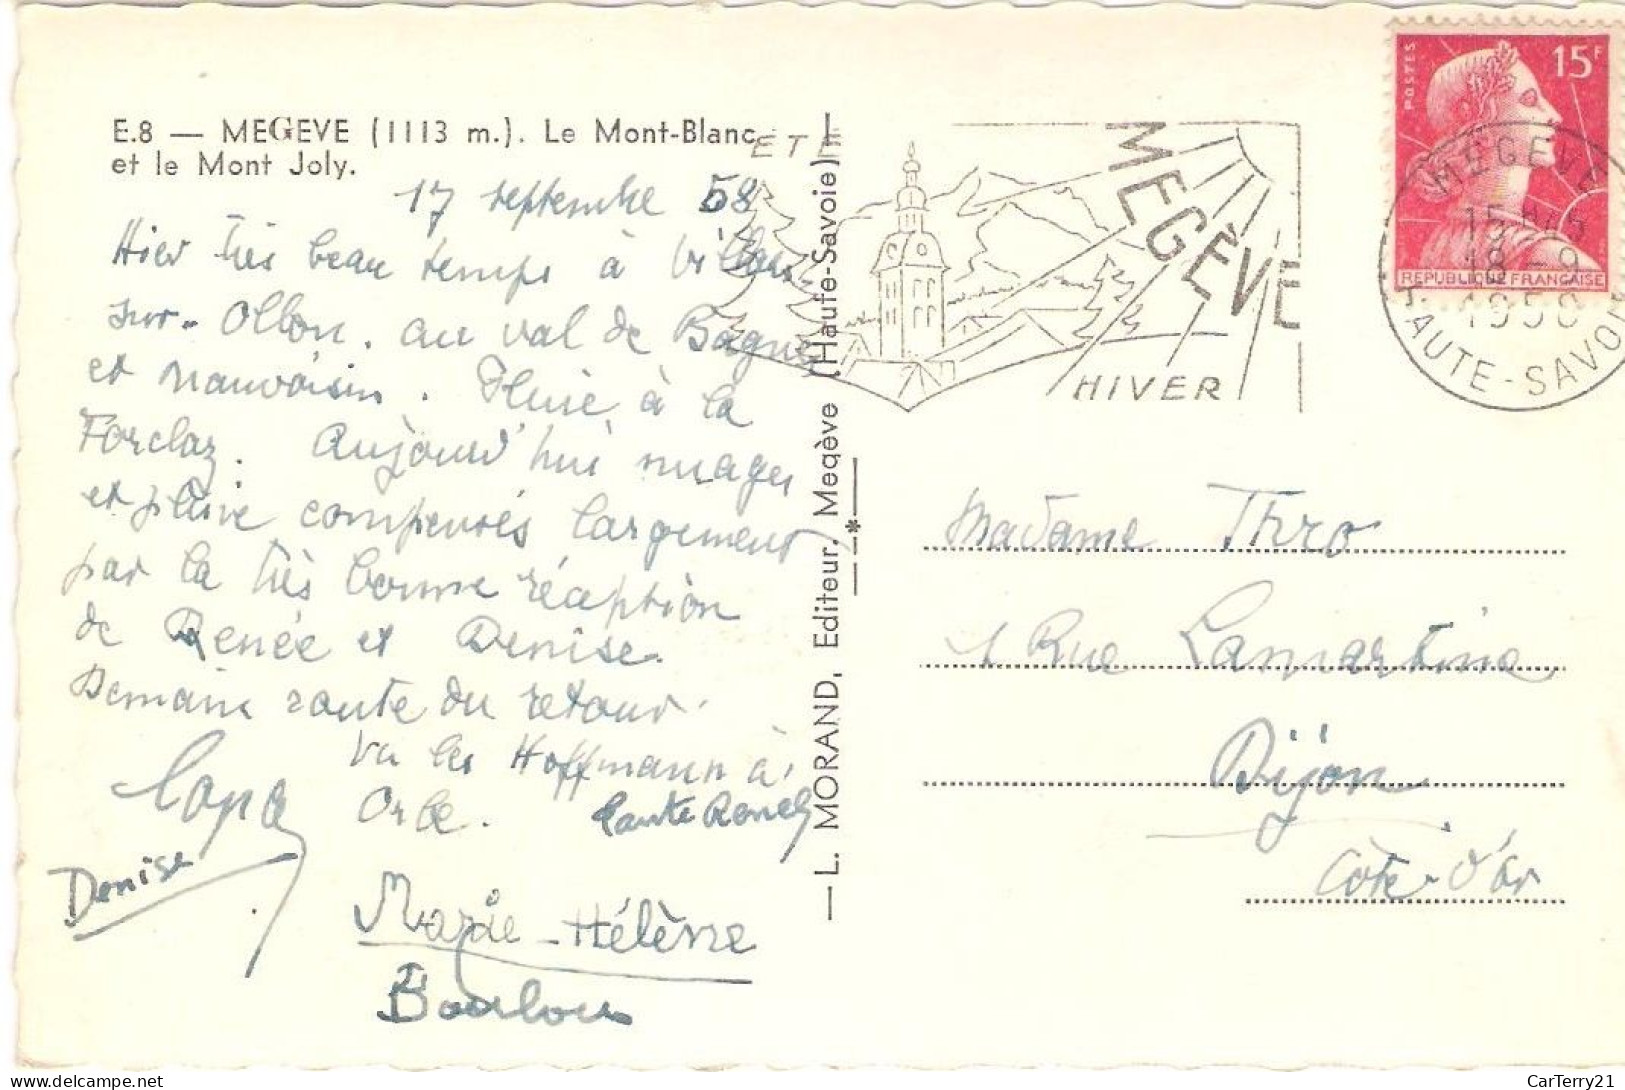 E.8 — MEGEVE (1113 m.). Le Mont-Blanc
et le Mont Joly.
17 septembre 58
Hier très beau temps à Villars
sur-Ollon. au val de Bagnes
et Mauvoisin. Pluie à la
Forclaz. Aujourd'hui nuages
et pluie compensés largement
par la très bonne réception
de Renée et Denise.
Demain route du retour.
Vu les Hoffmann à
Orbe.
Tante Renée
Papa
Denise
Marie-Hélène
L. MORAND, Editeur. Megève (Haute-Savoie)
ETE
MEGÈVE
HIVER
POSTES
15F
REPUBLIQUE FRANÇAISE
MEGÈVE
15H45
18-9
1958
HAUTE-SAVOIE
Madame Thro
1 Rue Lamartine
Dijon
Côte-d'or
CarTerry21